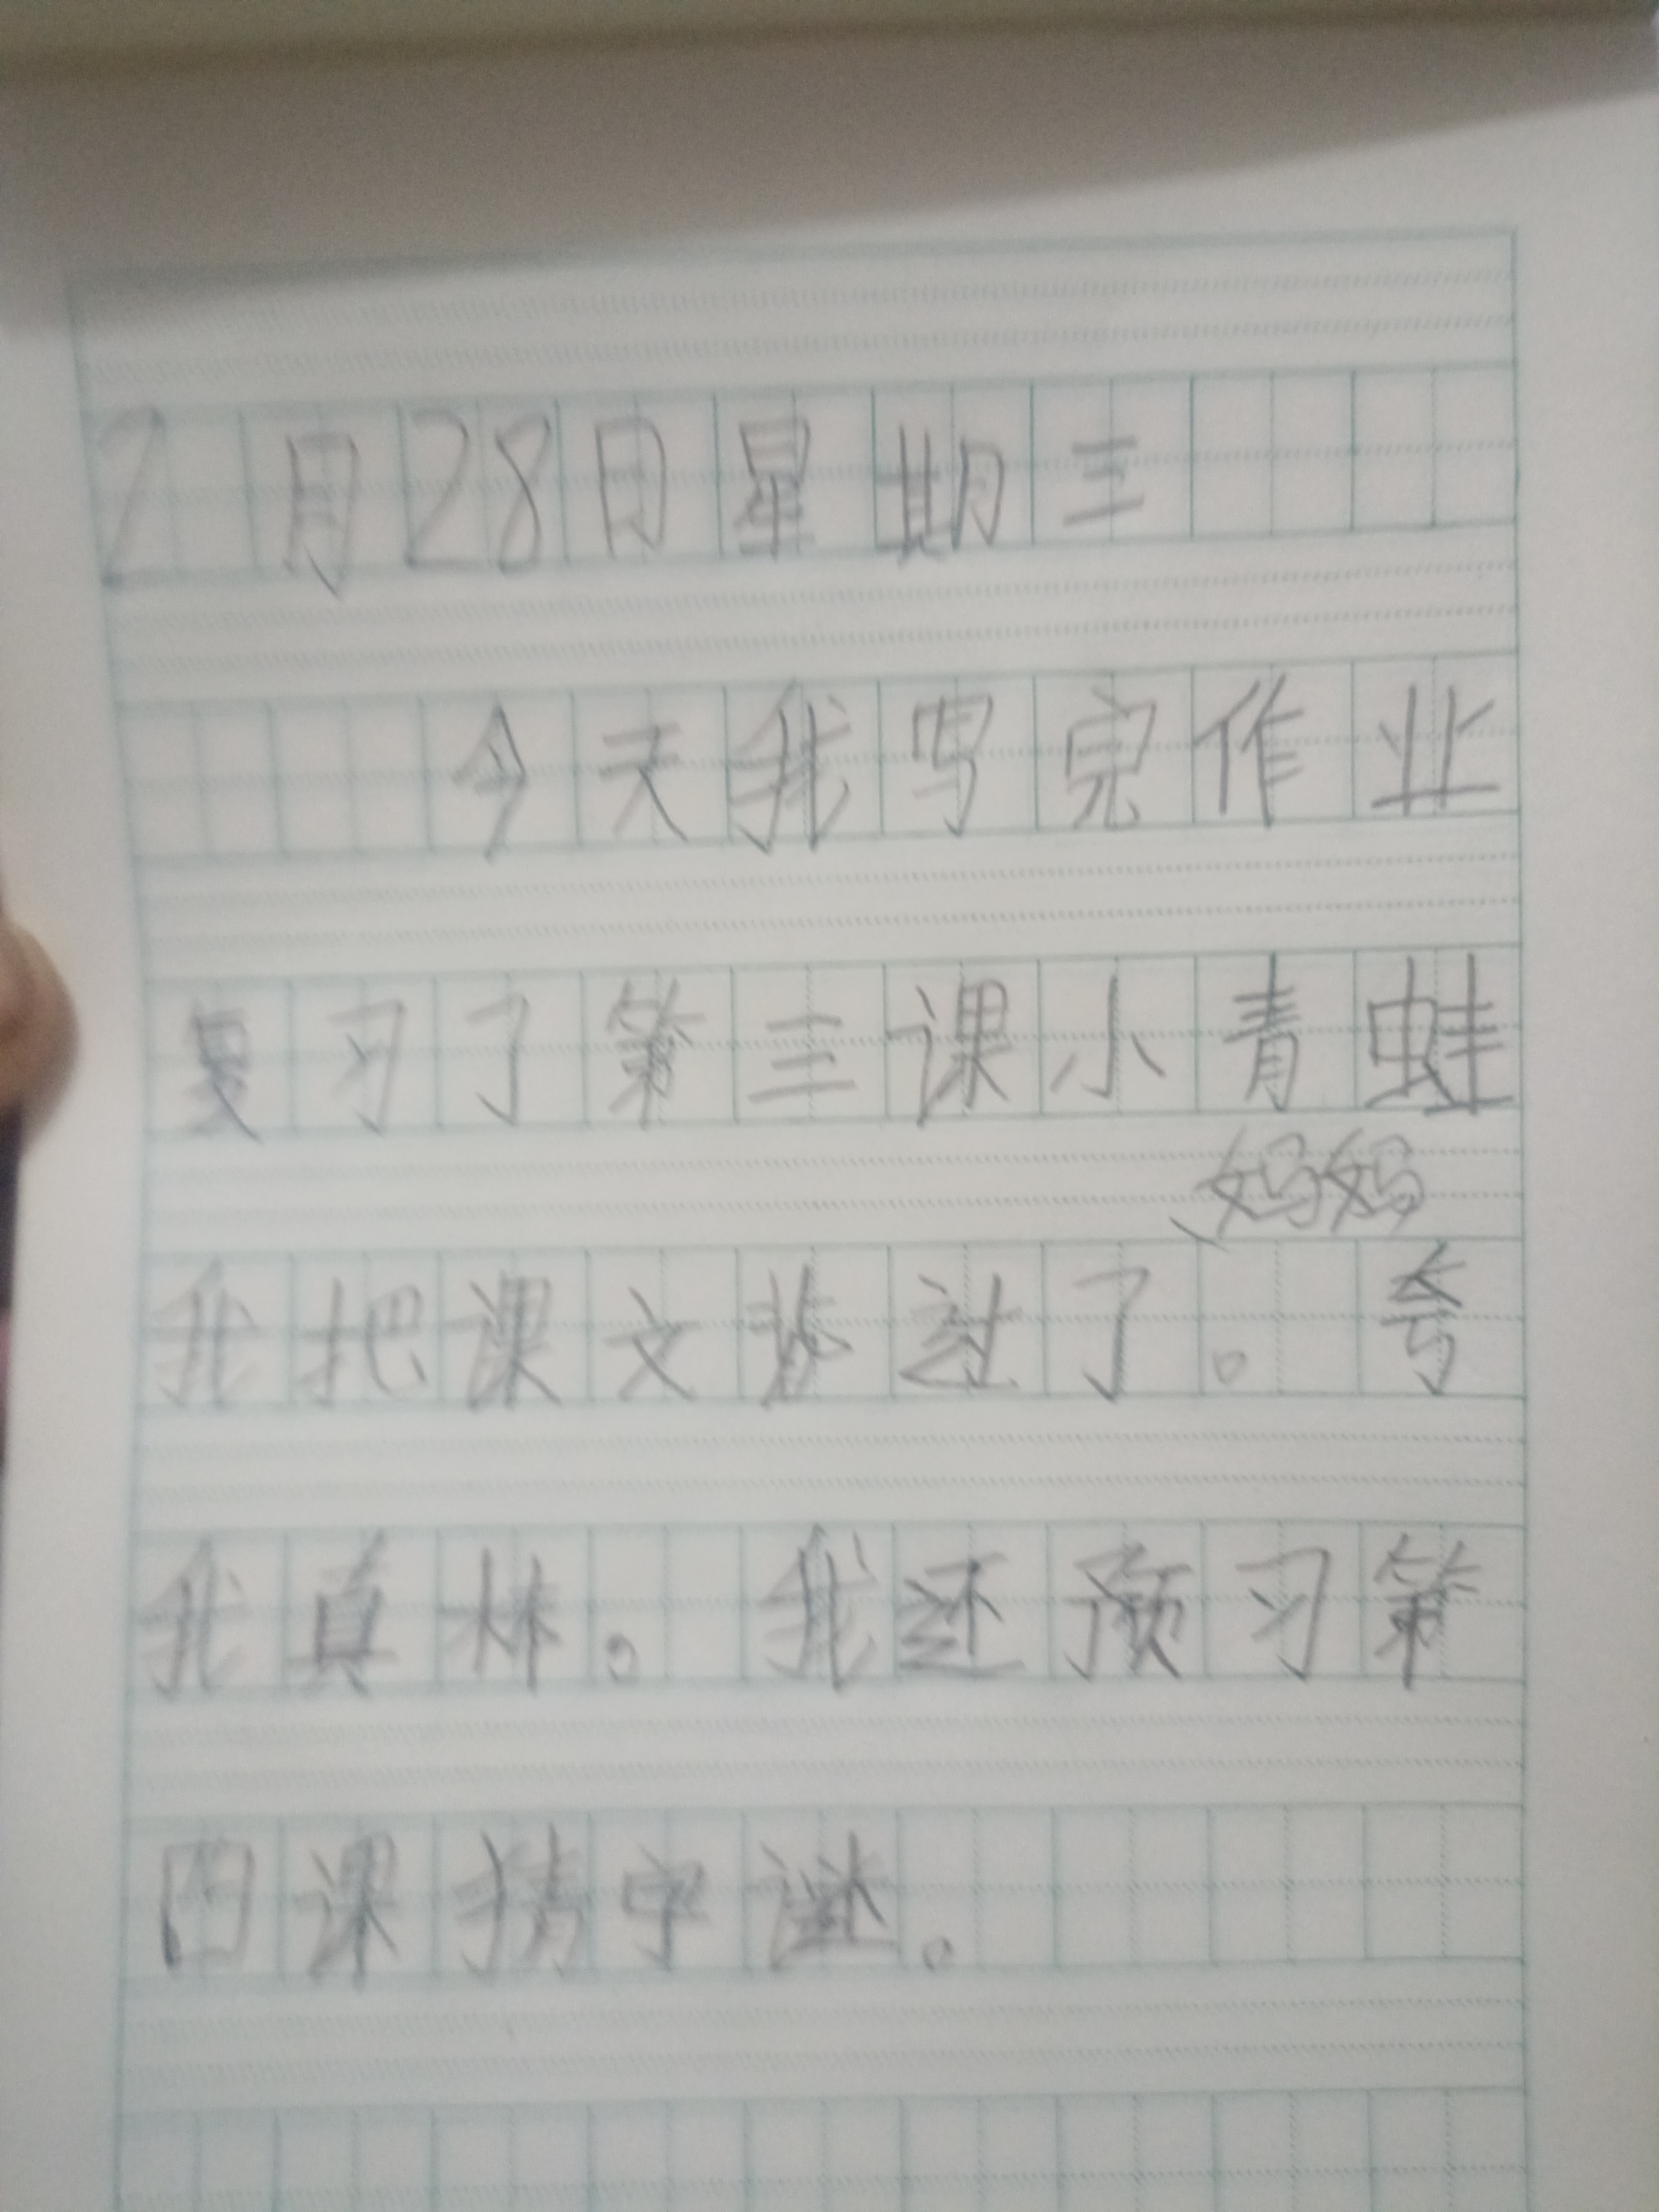 2月28日星期三
今天我写完作业
复习了第三课小青蛙
妈妈
我把课文抄过了。夸
我真棒。我还预习第
四课猜字谜。